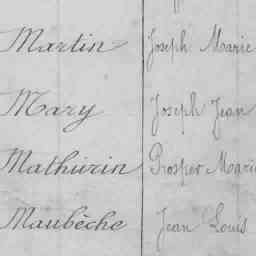 Martin Joseph Marie
Mary Joseph Jean
Mathurin Prosper Marie
Maubèche Jean Louis